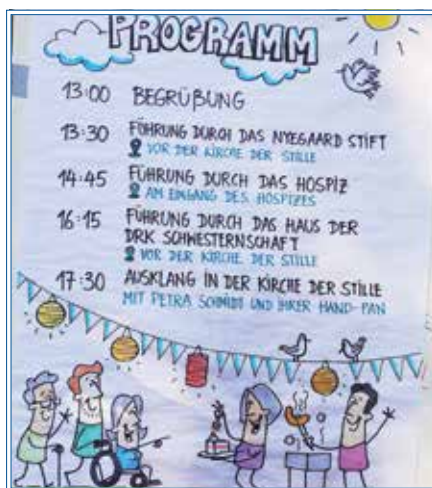 PROGRAMM
13:00 BEGRÜßUNG
13:30 FÜHRUNG DURCH DAS NYEGAARD STIFT
VOR DER KIRCHE DER STILLE
14:45 FÜHRUNG DURCH DAS HOSPIZ
AM EINGANG DES HOSPIZES
16:15 FÜHRUNG DURCH DAS HAUS DER
DRK SCHWESTERNSCHAFT
VOR DER KIRCHE DER STILLE
17:30 AUSKLANG IN DER KIRCHE DER STILLE
MIT PETRA SCHMIDT UND IHRER HAND-PAN